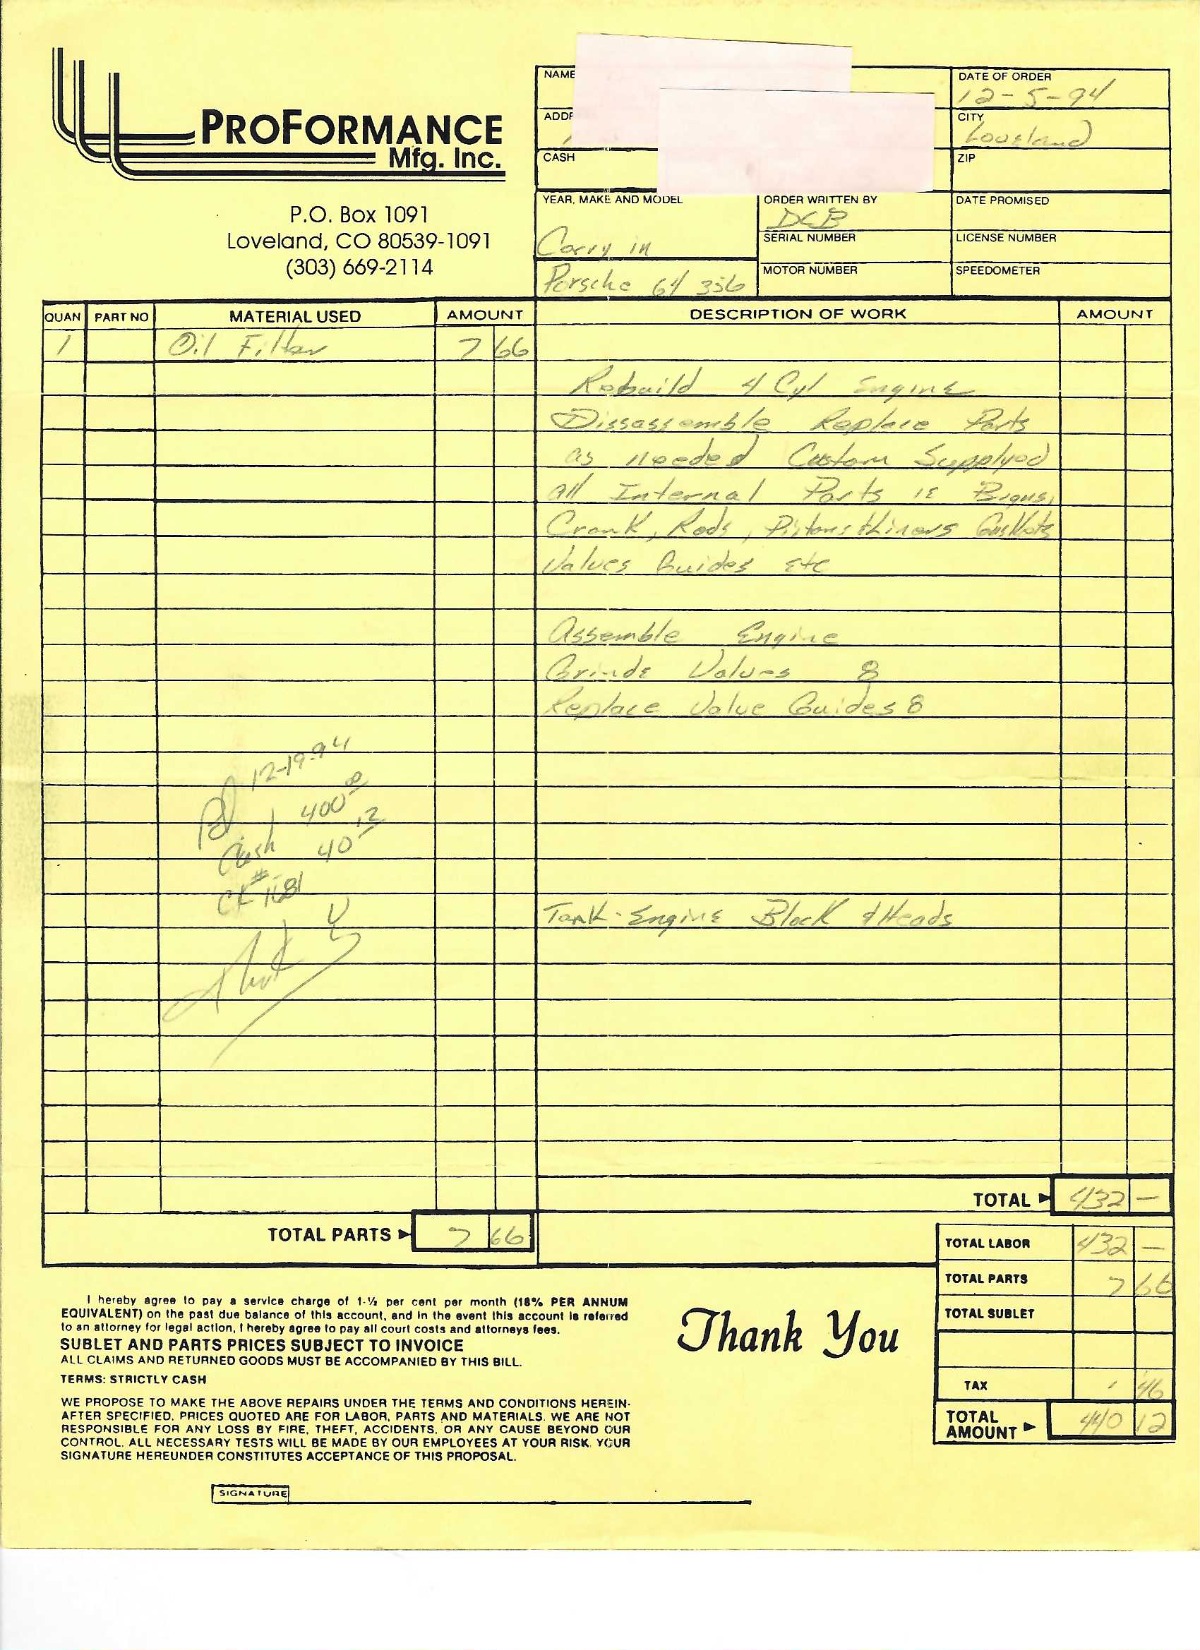 PROFORMANCE
Mfg. Inc.
P.O. Box 1091
Loveland, CO 80539-1091
(303) 669-2114
NAME
DATE OF ORDER
12-5-94
ADD
CITY
Loveland
CASH
ZIP
YEAR, MAKE AND MODEL
ORDER WRITTEN BY
DCB
DATE PROMISED
Carry in
SERIAL NUMBER
LICENSE NUMBER
Porsche 64 356
MOTOR NUMBER
SPEEDOMETER
QUAN PART NO MATERIAL USED AMOUNT DESCRIPTION OF WORK AMOUNT
1 Oil Filter 7 66
Rebuild 4 Cyl Engine
Dissassemble Replace Parts
as needed Custom Supplyed
all Internal Parts IE
Crank, Rods, Pistons & Liners Gaskets
Valves Guides Etc
Assemble Engine
Grinde Valves 8
Replace Valve Guides 8
Pd 12-19-94
Cash 400 00
Ck # 1681 40 12
Tank-Engine Block & Heads
TOTAL 432 —
TOTAL PARTS 7 66
TOTAL LABOR 432 —
TOTAL PARTS 7 66
TOTAL SUBLET
TAX . 46
TOTAL AMOUNT 440 12
I hereby agree to pay a service charge of 1-½ per cent per month (18% PER ANNUM
EQUIVALENT) on the past due balance of this account, and in the event this account is referred
to an attorney for legal action, I hereby agree to pay all court costs and attorneys fees.
SUBLET AND PARTS PRICES SUBJECT TO INVOICE
ALL CLAIMS AND RETURNED GOODS MUST BE ACCOMPANIED BY THIS BILL.
TERMS: STRICTLY CASH
Thank You
WE PROPOSE TO MAKE THE ABOVE REPAIRS UNDER THE TERMS AND CONDITIONS HEREIN-
AFTER SPECIFIED. PRICES QUOTED ARE FOR LABOR, PARTS AND MATERIALS. WE ARE NOT
RESPONSIBLE FOR ANY LOSS BY FIRE, THEFT, ACCIDENTS, OR ANY CAUSE BEYOND OUR
CONTROL. ALL NECESSARY TESTS WILL BE MADE BY OUR EMPLOYEES AT YOUR RISK. YOUR
SIGNATURE HEREUNDER CONSTITUTES ACCEPTANCE OF THIS PROPOSAL.
SIGNATURE